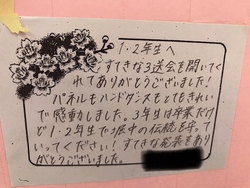 1・2年生へ
すてきな3送会を開いてく
れてありがとうございました!
パネルもハンドダンスもとてもきれい
で感動しました。3年生は卒業だけ
ど1・2年生で3年中の伝統を守って
いってください!すてきな花装をあり
がとうございました。